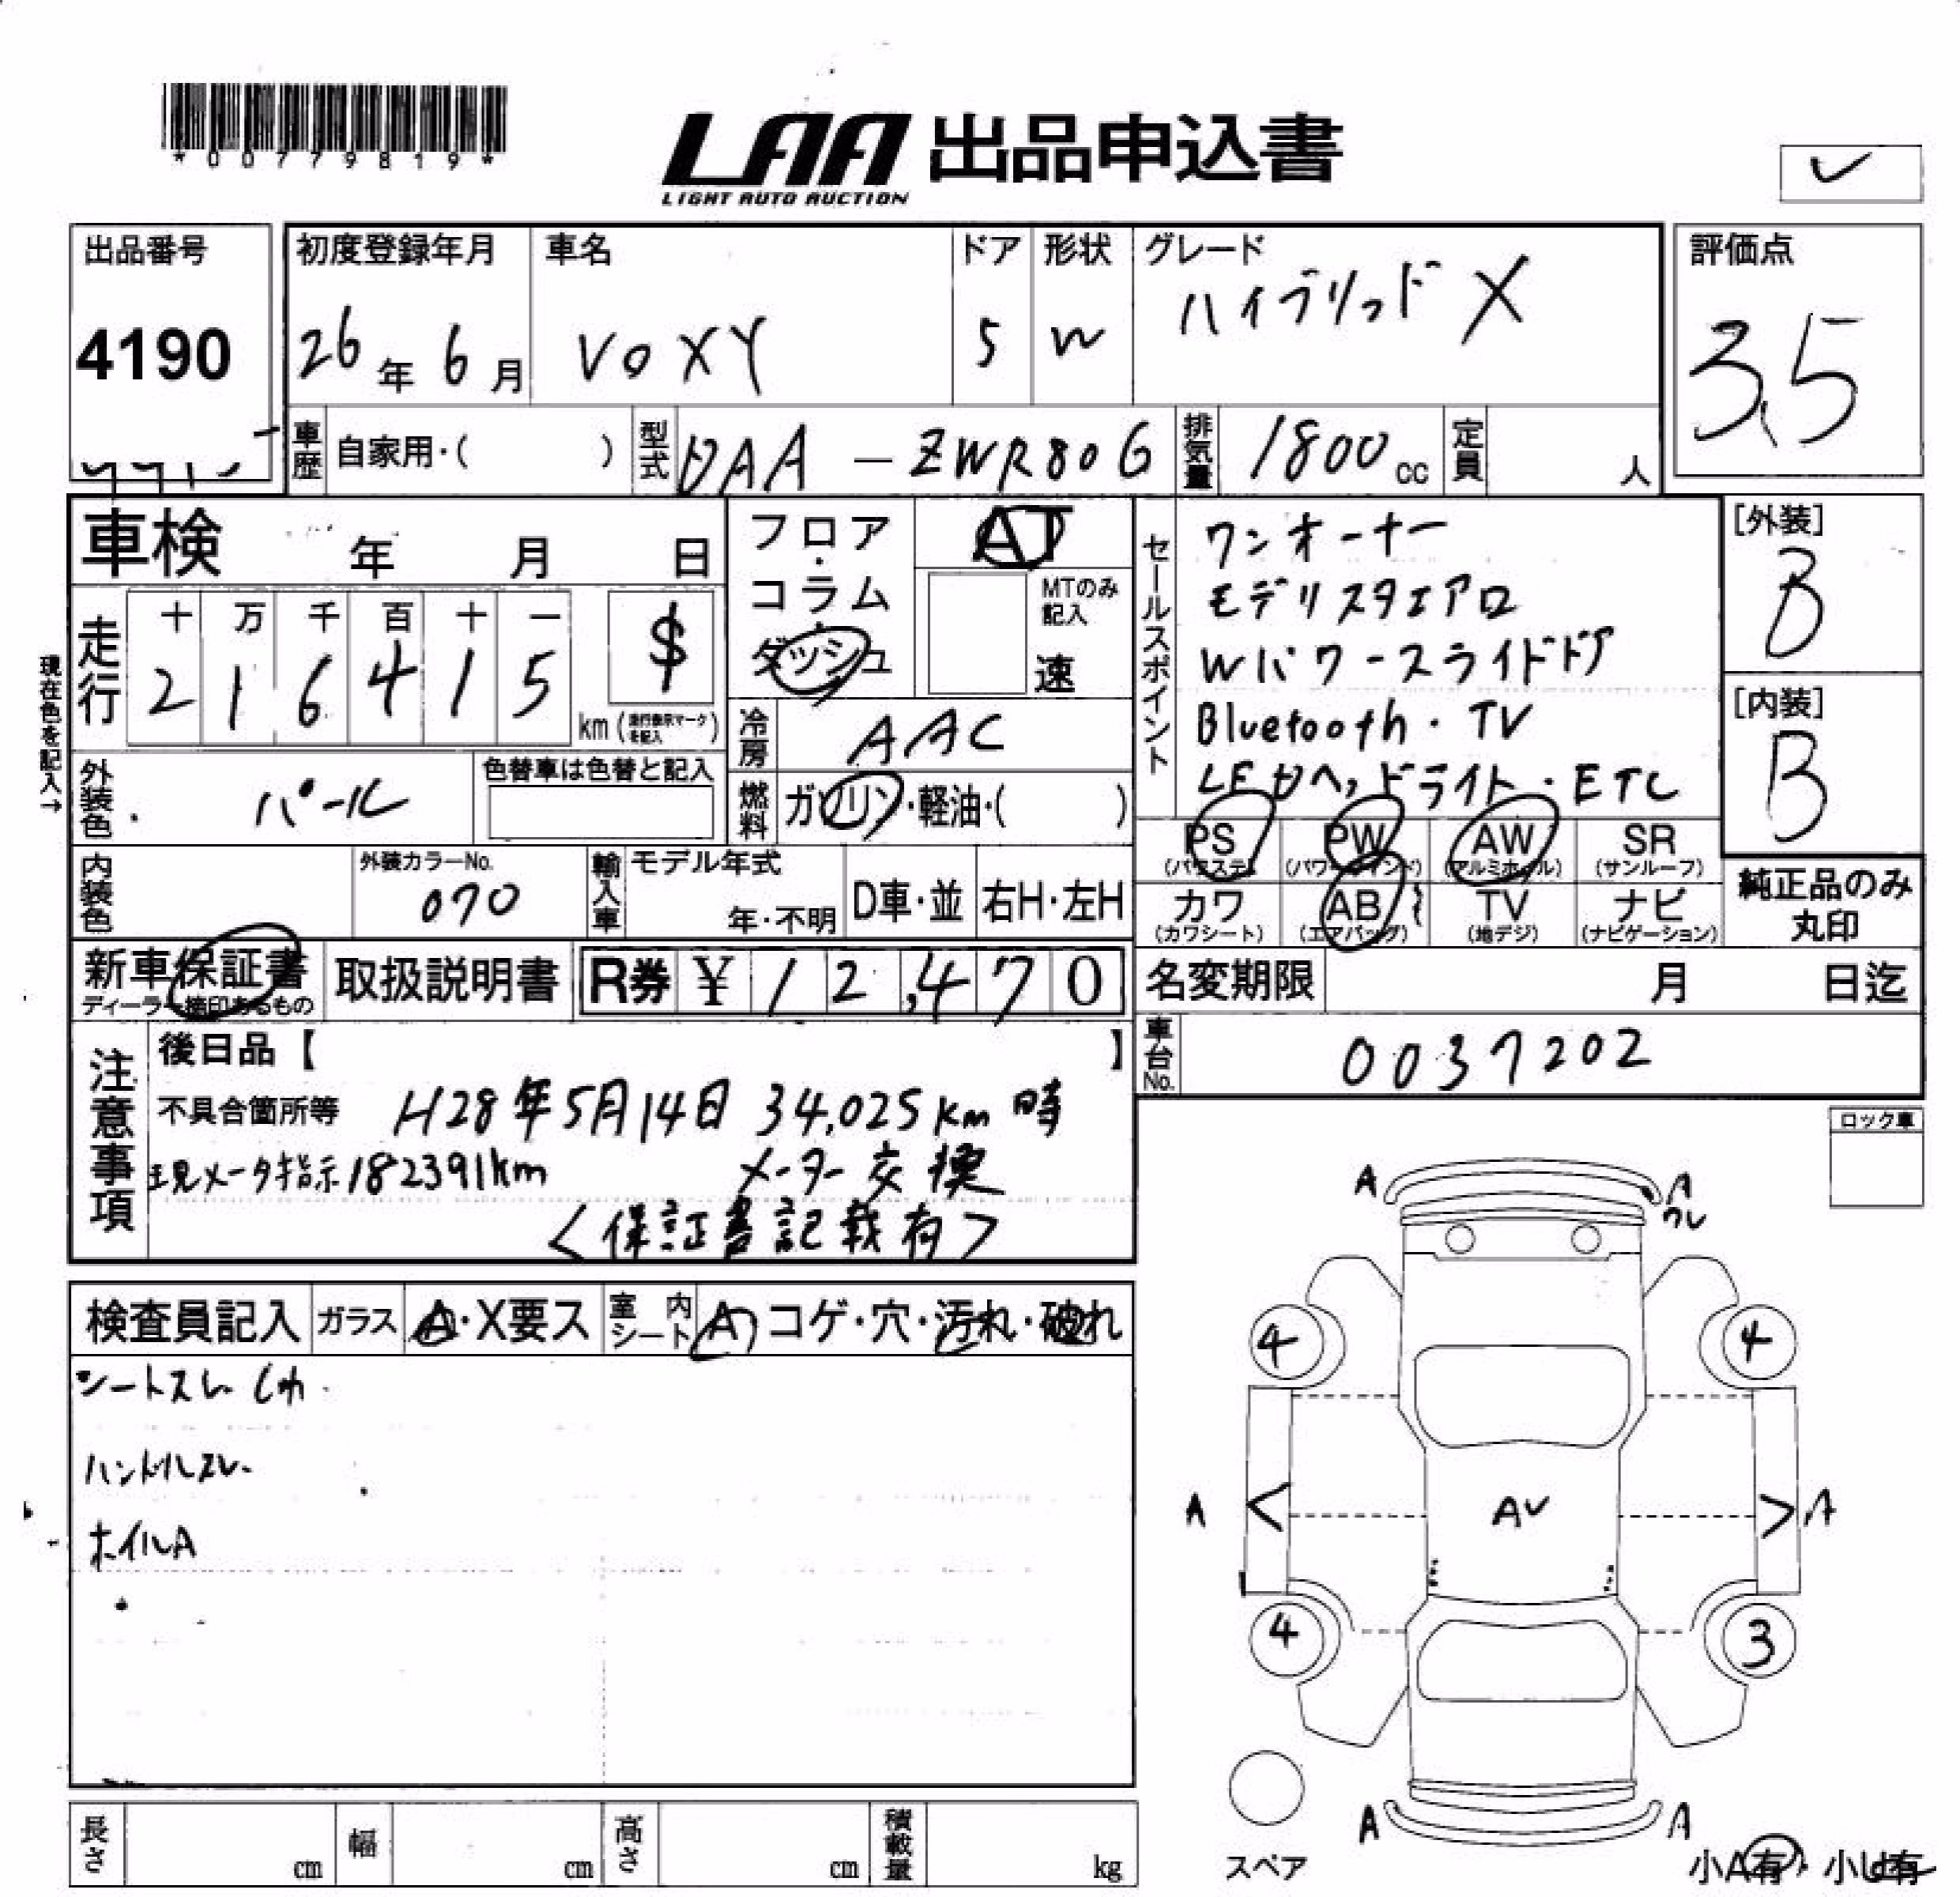 *00779819*
LAA 出品申込書
LIGHT AUTO AUCTION
出品番号
4190
初度登録年月
26年 6月
車名
VOXY
ドア
5
形状
W
グレード
ハイブリッド X
評価点
3.5
車歴 自家用・( )
型式 DAA - ZWR80G
排気量 1800 cc
定員 人
車検 年 月 日
走行
十 万 千 百 十 一
2 1 6 4 1 5
$
km (走行表示マークを記入)
現在色を記入→
フロア・コラム・ダッシュ
AT
MTのみ記入
速
冷房 AAC
燃料 ガソリン・軽油・( )
外装色 パール
色替車は色替と記入
内装色
外装カラーNo.
070
輸入車
モデル年式
年・不明
D車・並
右H・左H
セールスポイント
ワンオーナー
モデリスタエアロ
Wパワースライドドア
Bluetooth・TV
LEDヘッドライト・ETC
[外装]
B
[内装]
B
PS (パワステ)
PW (パワーウインド)
AW (アルミホイル)
SR (サンルーフ)
カワ (カワシート)
AB (エアバッグ)
TV (地デジ)
ナビ (ナビゲーション)
純正品のみ
丸印
新車保証書
ディーラー捺印あるもの
取扱説明書
R券 ¥ 12,470
名変期限 月 日迄
車台No. 0037202
注意事項
後日品【 】
不具合箇所等 H28年5月14日 34,025km 時
現メータ指示182391km メーター交換
<保証書記載有>
ロック車
検査員記入
ガラス A・X要ス
室内シート A コゲ・穴・汚れ・破れ
シートスレ
ハンドルスレ
ホイルA
A A
ワレ
4 4
A < AV > A
4 3
A A
スペア
小A有・小U有
長さ cm
幅 cm
高さ cm
積載量 kg